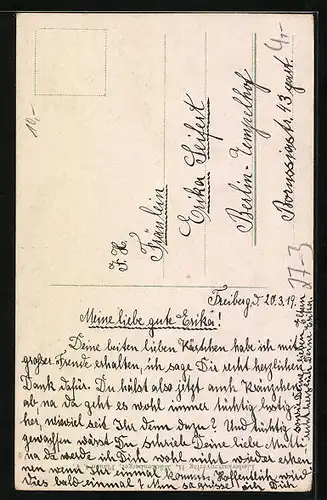 10,-
I. H.
Fräulein
Erika Seifert
Berlin-Tempelhof
Borussiastr. 43 gart.
4,-
27-3
Freiberg, d. 20.3.19.
Meine liebe gute Erika!
Deine beiden lieben Kärtchen habe ich mit
großer Freude erhalten, ich sage Dir recht herzlichen
Dank dafür. Du hälst also jetzt auch Kränzchen
ab, na da geht es wohl immer tüchtig lustig
her, wieviel seit Ihr denn dazu? Und tüchtig
gewachsen wärst Du, schrieb Deine liebe Mutti
na da werde ich Dich wohl nicht wieder erken
nen wenn ich einmal komme. Hoffentlich wird
dies bald einmal! Nun sei gegrüßt Dir, Dich
lieben Eltern